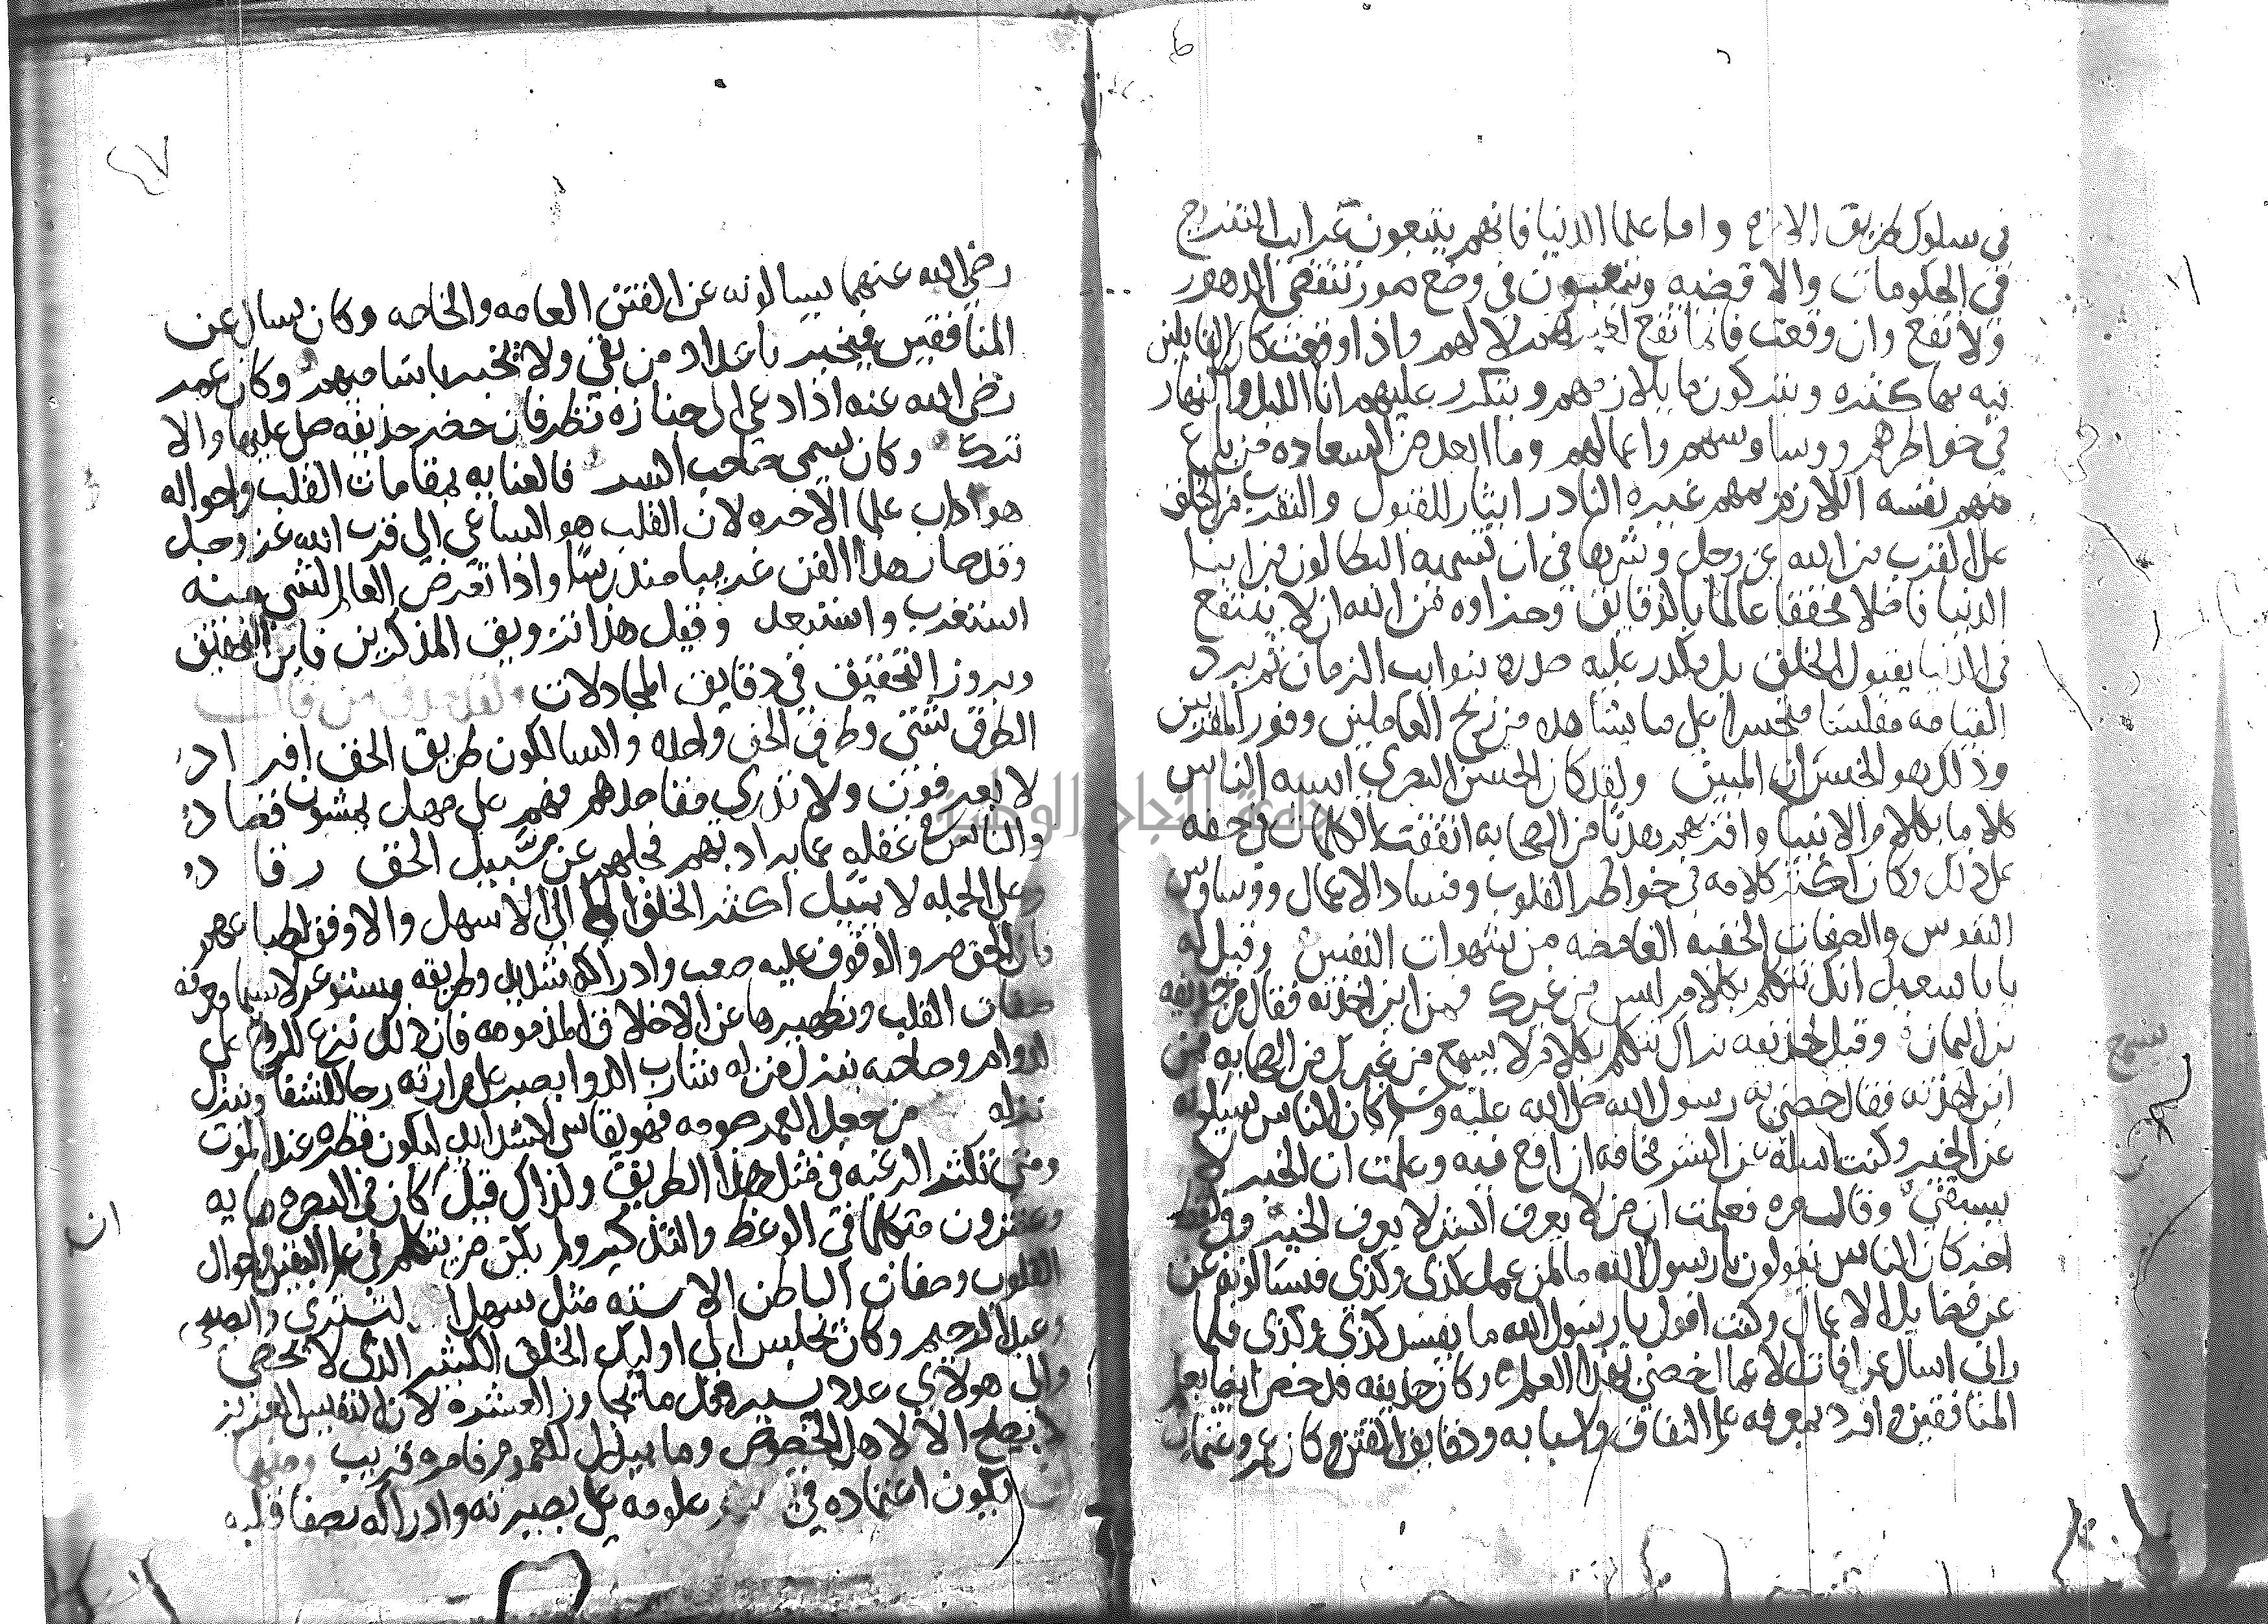 في سلوك طريق الاخره واما علما الدنيا فانهم يتبعون غرايب التفريع
في الحكومات والاقضيه ويتعبون في وضع صور تنقضي الدهور
ولا تقع وان وقعت فانما تقع لغيرهم لا لهم واذا وقعت كان في القايلين
فيه بها كثره ويتركون ما يلازمهم ويتكرر عليهم انا الليل والنهار
في خواطرهم ووساوسهم واعمالهم وما ابعد من السعاده من باع
مهم نفسه اللازم بمهم غيره النادر ايثار للقبول والتقرب من الخلق
على القرب من الله عز وجل وشرها في ان تسميه البطالون من ابنا
الدنيا فاضلا محققا عالما بالدقايق وجزاوه من الله ان لا ينتفع
في الدنيا بقبول الخلق بل يكدر عليه صفوه بنوايب الزمان ثم يرد
القيامه مفلسا متحسرا على ما يشاهده من ربح العاملين وفوز المقربين
وذلك هو الخسران المبين ولقد كان الحسن البصري اشبه الناس
كلاما بكلام الانبيا واقربهم هديا من الصحابه اتفقت الكلمات في حقه
على ذلك وكان اكثر كلامه في خواطر القلوب وفساد الاعمال ووساوس
النفوس والصفات الخفيه الغامضه من شهوات النفس وقيل له
يا با سعيد انك تتكلم بكلام ليس من غيرك فمن اين اخذته فقال من حذيفه
بن اليمان وقيل لحذيفه نراك تتكلم بكلام لا يسمع من غيرك من الصحابه فمن
اين اخذته فقال خصني به رسول الله صلى الله عليه وسلم كان الناس يسيلوه
عن الخير وكنت اسيله عن الشر مخافه ان اقع فيه وعلمت ان الخير لا
يسبقني وقال مره فعلمت ان من لا يعرف الشر لا يعرف الخير وفي لفظ
اخر كان الناس يقولون يا رسول الله ما لمن عمل كذى وكذى فيسالونه عن
عن فضايل الاعمال وكنت اقول يا رسول الله ما يفسد كذى وكذى فلما
راني اسال عن افات الاعمال خصني بهذا العلم وكان حذيفه قد خص ايضا بعلم
المنافقين وافرد بمعرفه علم النفاق واسبابه ودقايق الفتن وكان عمر وعثمان
سمع
٤٧
رضي الله عنهما يسالونه عن الفتن العامه والخاصه وكان يسال عن
المنافقين فيخبر باعداد من بقي ولا يخبر باساميهم وكان عمر
رضي الله عنه اذا دعي الى جنازه نظر فان حضر حذيفه صلى عليها والا
ترك وكان يسمي صاحب السر فالعنايه بمقامات القلب واحواله
هو اداب علما الاخره لان القلب هو الساعي الى قرب الله عز وجل
وقد صار هذا الفن غريبا مندرسا واذا تعرض العالم لشي منه
استغرب واستبعد وقيل هذا تزويق المذكرين فاين التحقيق
ويروز التحقيق في دقايق المجادلات ولقد صدق من قال
الطرق شتى وطرق الحق واحده والسالكون طريق الحق افراد
لا يعرفون ولا تدري مقاصدهم فهم على مهل يمشون قصاد
والناس في غفله عما يراد بهم فجلهم عن سبيل الحق رقاد
وعلى الجمله لا يميل اكثر الخلق الا الى الاسهل والاوفق لطباعهم
فان الحق مر والوقوف عليه صعب وادراكه شديد وطريقه مستوعر لا سيما معرفه
صفات القلب وتطهيرها عن الاخلاق المذمومه فان ذلك نزع للروح على
الدوام وصاحبه ينزل منزله شارب الدوا يصبر على مرارته رجا للشفا وينزل
نزله من جعل العمر صومه فهو يقاسي الشدايد ليكون فطره عند الموت
ومتى تكثر الرغبه في مثل هذا الطريق ولذلك قيل كان في البصره مايه
وعشرون متكلما في الوعظ والتذكير ولم يكن من يتكلم في علم اليقين واحوال
القلوب وصفات الباطن الا سته مثل سهل التستري والصبحي
وعبد الرحيم وكان يجلس الى اوليك الخلق الكثير الذى لا يحصى
والى هولاي عدد يسير قل ما يجاوز العشره لان النفيس العزيز
لا يصلح الا لاهل الخصوص وما يبذل للعموم فامره قريب ومنها
ان يكون اعتماده في علومه على بصيرته وادراكه بصفا قلبه
ان